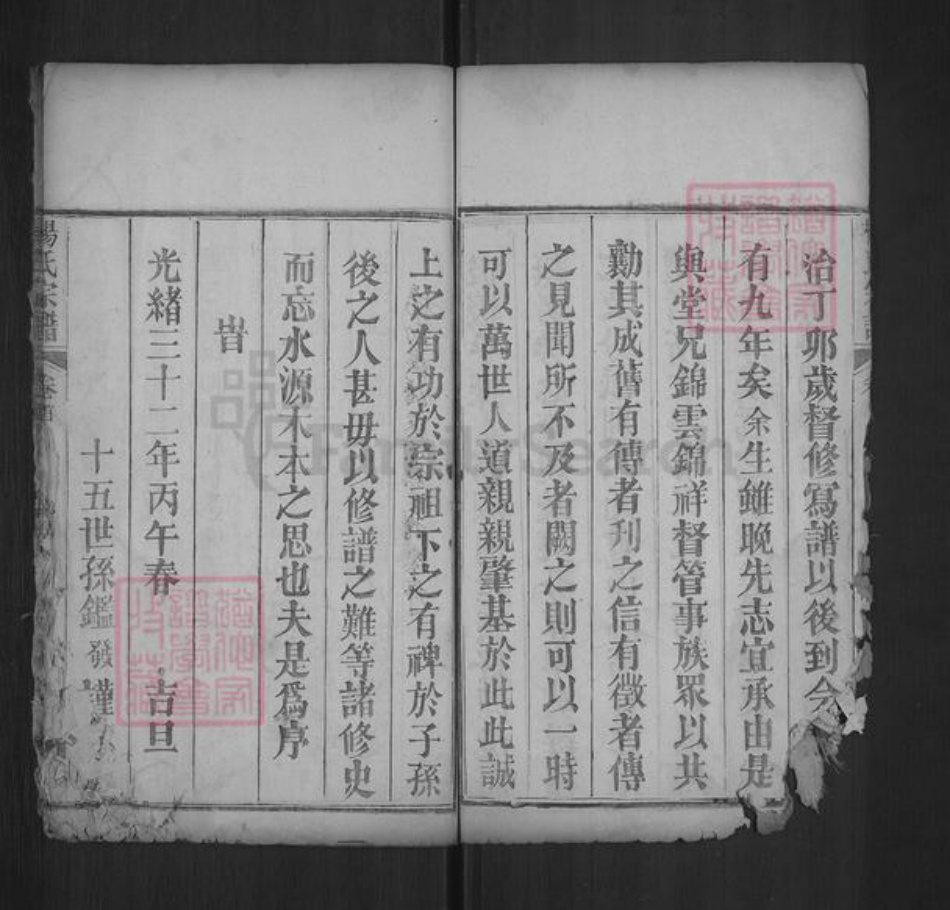 治丁卯歲督修寫譜以後到今
有九年矣余生雖晚先志宜承由是
與堂兄錦雲錦祥督管事族眾以共
勷其成舊有傳者刋之信有徵者傳
之見聞所不及者闕之則可以一時
可以萬世人道親親肇基於此此誠
上之有功於宗祖下之有裨於子孫
後之人甚毋以修譜之難等諸修史
而忘水源木本之思也夫是爲序
旹
光緒三十二年丙午春 吉旦
十五世孫鑑發謹
楊氏宗譜 卷首
FamilySearch